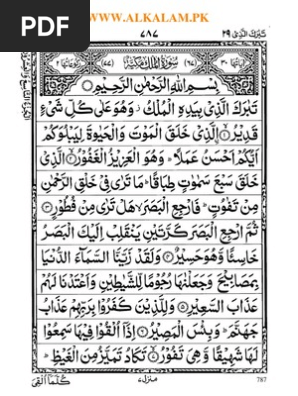 WWW.ALKALAM.PK
PDF
تَبٰرَكَ الَّذِيْ ٢٩
٧٨٧
سُوْرَةُ الْمُلْكِ مَكِّيَّةٌ
بِسْمِ اللهِ الرَّحْمٰنِ الرَّحِيْمِ
تَبٰرَكَ الَّذِيْ بِيَدِهِ الْمُلْكُ وَهُوَ عَلٰى كُلِّ شَيْءٍ
قَدِيْرُ ۙ﴿١﴾ الَّذِيْ خَلَقَ الْمَوْتَ وَالْحَيٰوةَ لِيَبْلُوَكُمْ
اَيُّكُمْ اَحْسَنُ عَمَلًا ؕ وَهُوَ الْعَزِيْزُ الْغَفُوْرُ ۙ﴿٢﴾ الَّذِيْ
خَلَقَ سَبْعَ سَمٰوٰتٍ طِبَاقًا ؕ مَا تَرٰى فِيْ خَلْقِ الرَّحْمٰنِ
مِنْ تَفٰوُتٍ ؕ فَارْجِعِ الْبَصَرَ ۙ هَلْ تَرٰى مِنْ فُطُوْرٍ ﴿٣﴾
ثُمَّ ارْجِعِ الْبَصَرَ كَرَّتَيْنِ يَنْقَلِبْ اِلَيْكَ الْبَصَرُ
خَاسِئًا وَّهُوَ حَسِيْرٌ ﴿٤﴾ وَلَقَدْ زَيَّنَّا السَّمَآءَ الدُّنْيَا
بِمَصَابِيْحَ وَجَعَلْنٰهَا رُجُوْمًا لِّلشَّيٰطِيْنِ وَاَعْتَدْنَا لَهُمْ
عَذَابَ السَّعِيْرِ ﴿٥﴾ وَلِلَّذِيْنَ كَفَرُوْا بِرَبِّهِمْ عَذَابُ
جَهَنَّمَ ؕ وَبِئْسَ الْمَصِيْرُ ﴿٦﴾ اِذَآ اُلْقُوْا فِيْهَا سَمِعُوْا
لَهَا شَهِيْقًا وَّهِيَ تَفُوْرُ ۙ﴿٧﴾ تَكَادُ تَمَيَّزُ مِنَ الْغَيْظِ ؕ
كُلَّمَآ اُلْقِيَ
منزل ٧
787